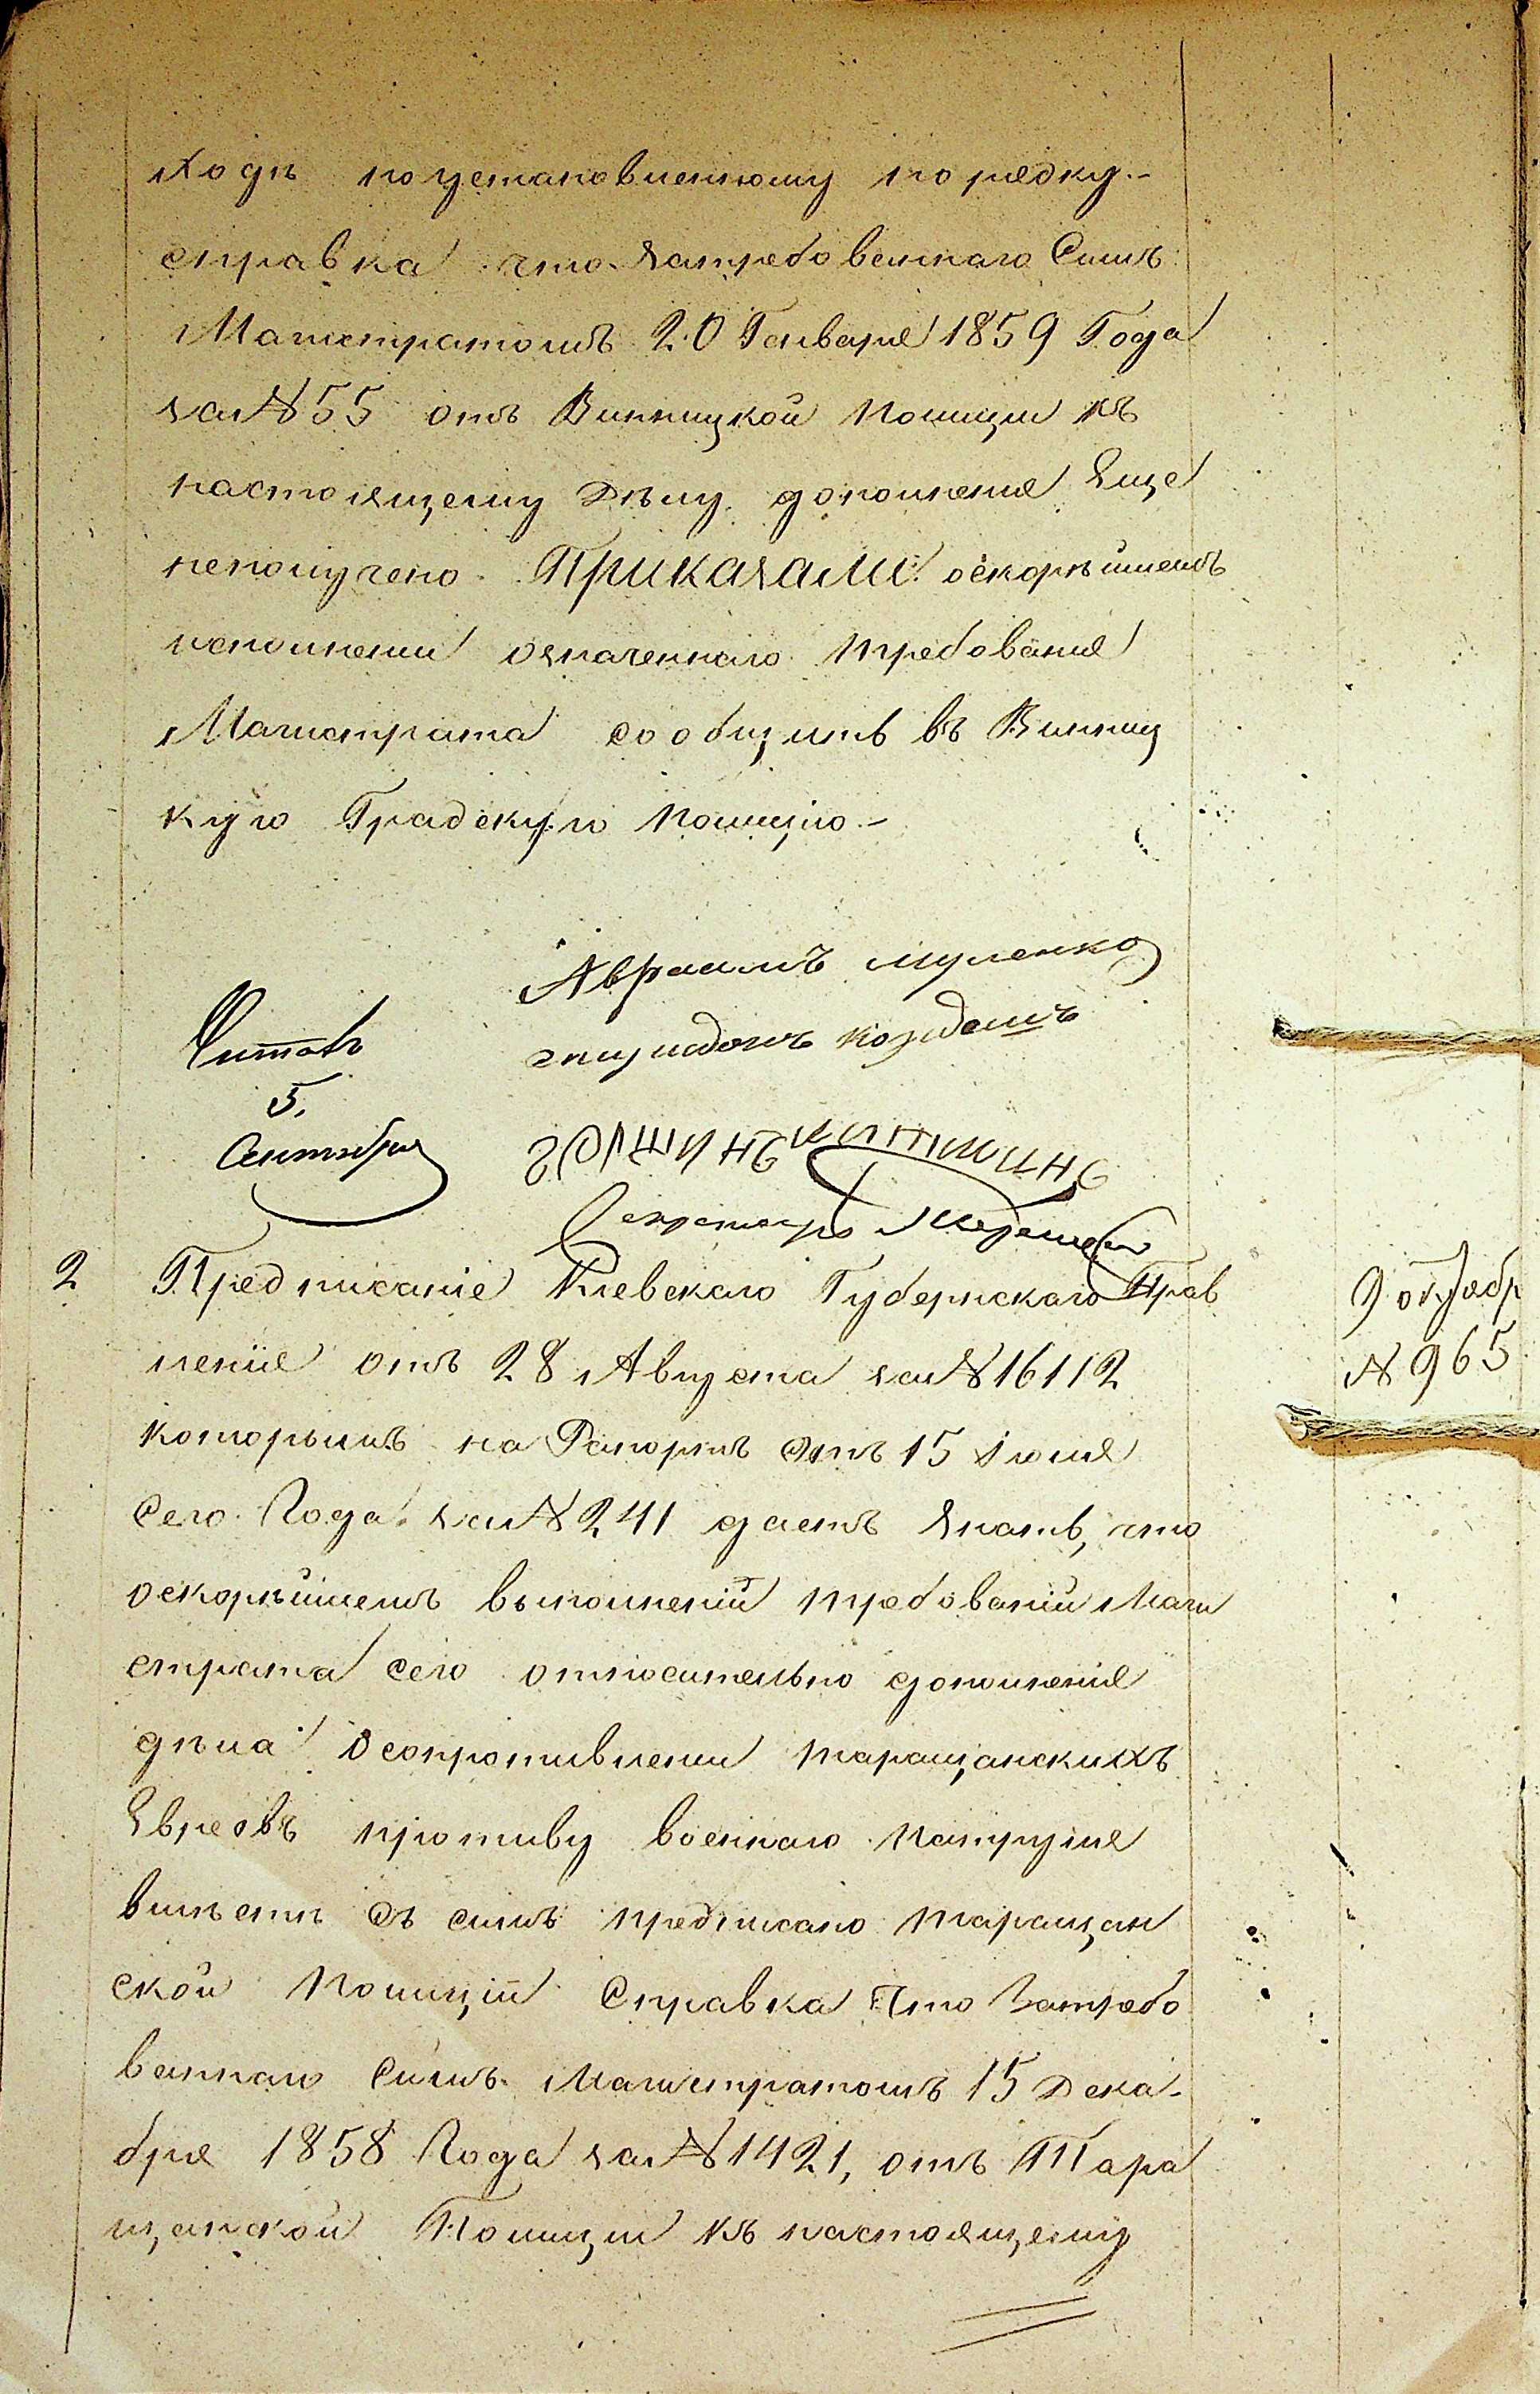 ходъ поустановленному порядку.-
справка что затребованнаго Симъ
Магистратомъ 20 Генваря 1859 Года
за № 55 отъ Винницкой полиции къ
настоящему Дѣлу дополнения Еще
неполучено. Приказали: оскорѣйшемъ
исполнении означеннаго требования
Магистрата сообщить въ Винниц
кую Градскую полицію.-
Авраамъ
Читалъ
5.
Сентября
Секретарь
2 Предписаніе Киевскаго Губернскаго Прав
ления отъ 28 Августа за № 16112
9 октябр
№ 965
которымъ на Рапортъ отъ 15 Іюля
Сего Года за № 241 даетъ знать, что
оскорѣйшемъ выполненій требованій Маги
страта сего относительно дополнения
дѣла о сопротивлении таращанскихъ
Евреевъ противу военнаго патруля
вмѣстѣ съ симъ предписано таращан
ской полиціи Справка Что Затребо
ваннаго Симъ Магистратомъ 15 Дека-
бря 1858 Года за № 1421, отъ Тара
щанской Полиции къ настоящему